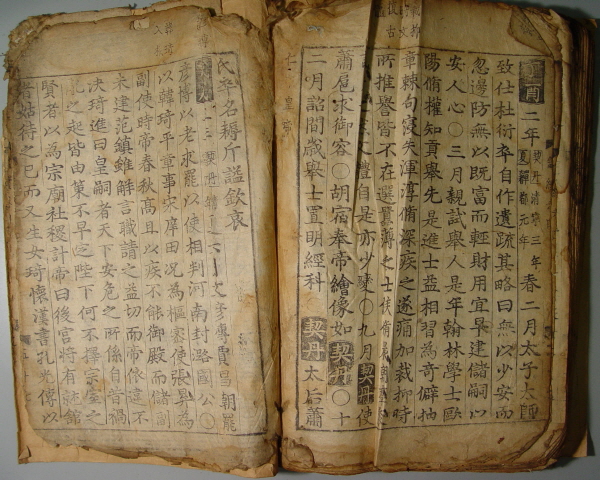 酉二年契丹清寧三年夏奲都元年春二月太子太師
致仕杜衍卒自作遺疏其略曰無以少安而
忽邊防無以既富而輕財用宜早建儲嗣以
安人心○三月親試舉人是年翰林學士歐
陽脩權知貢舉先是進士益相習爲奇僻抽
章棘句寖失渾淳脩深疾之遂痛加裁抑時
所推譽皆不在選囂薄之士
文體自是亦少變○九月契丹使
蕭扈求御容○胡宿奉帝繪像如契丹○十
二月詔間歲舉士置明經科契丹太后蕭
氏卒名耨斤諡欽哀
三契丹清寧文彥博賈昌朝罷
彥博以老求罷以使相判河南封潞國公○
以韓琦平章事宋庠田況爲樞密使張昪爲
副使時帝春秋高且以疾不能御殿而儲副
未建范鎮雖解言職請之益切而帝依違不
決琦進曰皇嗣者天下安危之所係自昔禍
亂之起皆由策不早定陛下何不擇宗室之
賢者以爲宗廟社稷計帝曰後宮將有就館
者姑待之已而又生女琦懷漢書孔光傳以